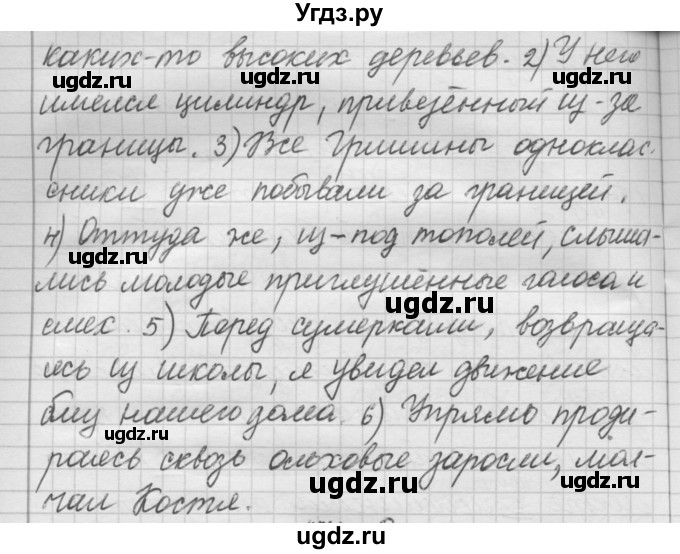 Угдз.ру
каких-то высоких деревьев. 2) У него
имелся цилиндр, привезённый из-за
границы. 3) Все Гришины одноклас-
сники уже побывали за границей.
4) Оттуда же, из-под тополей, слыша-
лись молодые приглушённые голоса и
смех. 5) Перед сумерками, возвраща-
ясь из школы, я увидел движение
близ нашего дома. 6) Упрямо проди-
раясь сквозь ольховые заросли, мол-
чал Костя.
ugdz.ru
ugdz.ru
ugdz.ru
ugdz.ru
ugdz.ru
ugdz.ru
ugdz.ru
ugdz.ru
ugdz.ru
ugdz.ru
ugdz.ru
ugdz.ru
ugdz.ru
ugdz.ru